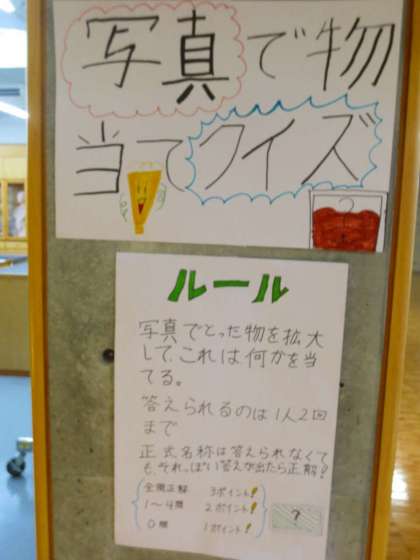 写真で物
当てクイズ
ルール
写真でとった物を拡大
して、これは何かを当
てる。
答えられるのは1人2回
まで
正式名称は答えられなくて
も、それっぽい答えが出たら正解!
全問正解 3ポイント!
1〜4問 2ポイント!
0問 1ポイント!
?